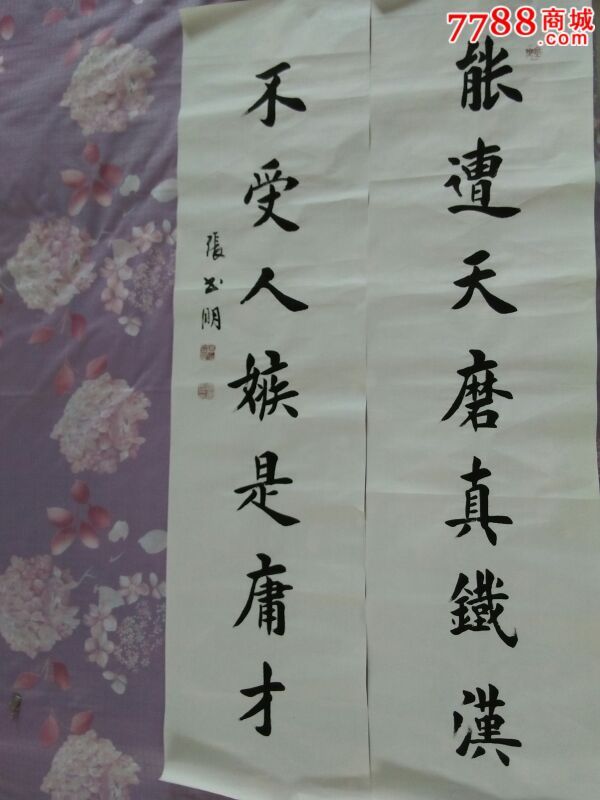 7788商城
.com
能遭天磨真鐵漢
不受人嫉是庸才
張
明